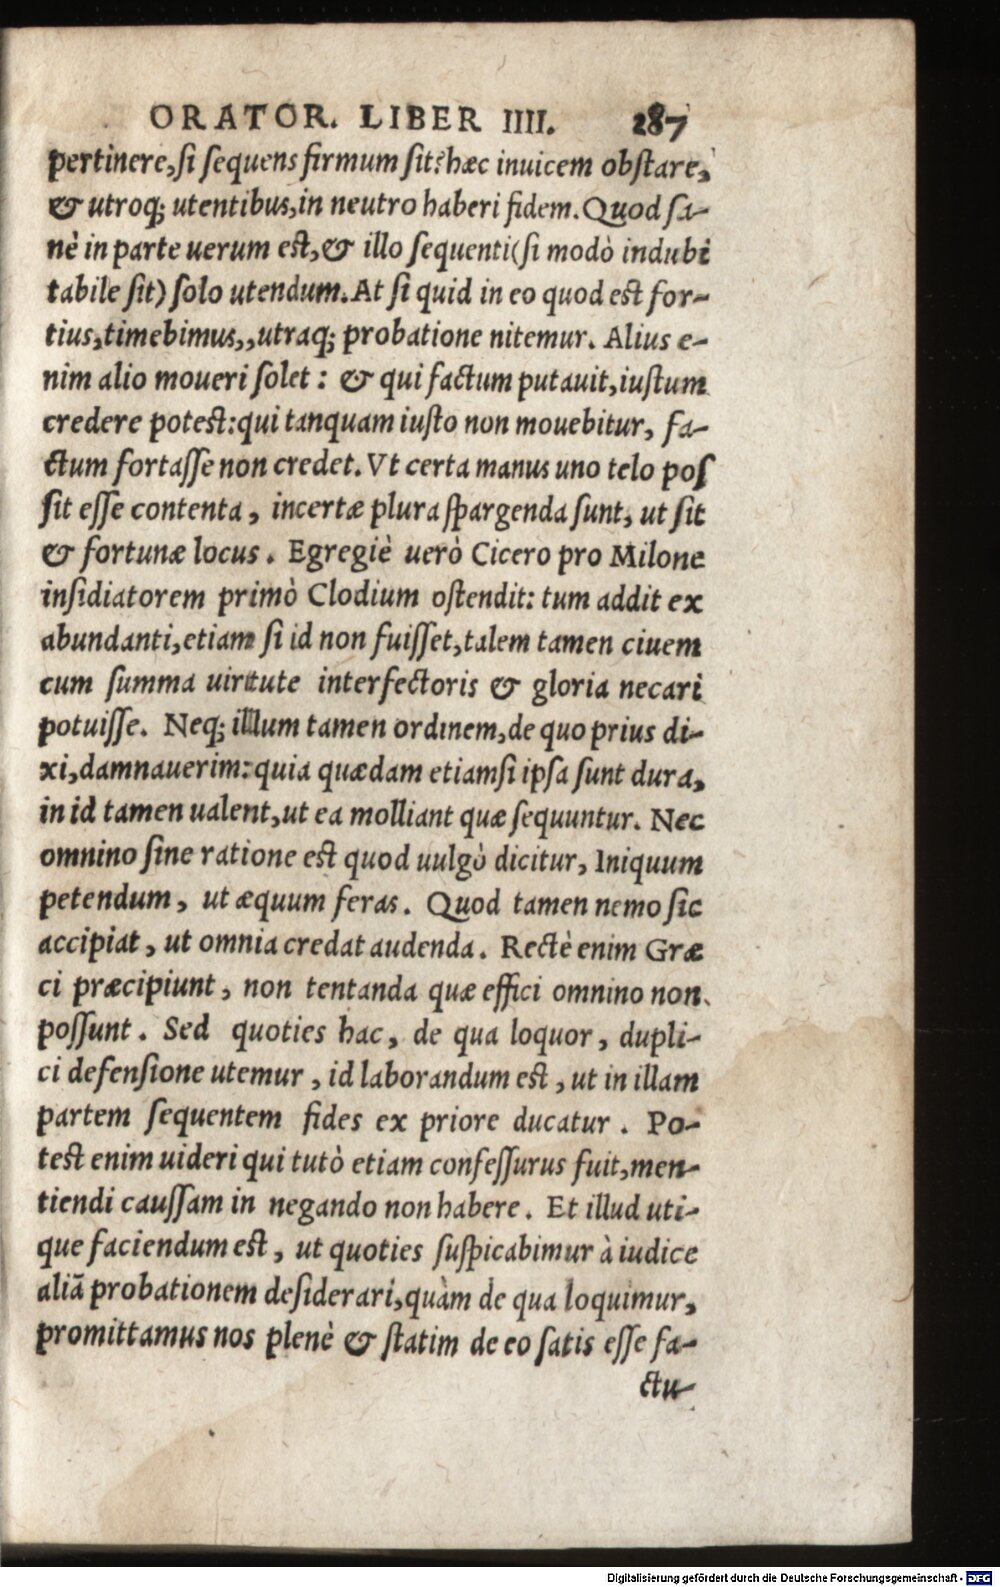 ORATOR. LIBER IIII. 287
pertinere, si sequens firmum sit? hæc inuicem obstare,
& utroq; utentibus, in neutro haberi fidem. Quod sa-
nè in parte uerum est, & illo sequenti (si modò indubi
tabile sit) solo utendum. At si quid in eo quod est for-
tius, timebimus,, utraq; probatione nitemur. Alius e-
nim alio moueri solet : & qui factum putauit, iustum
credere potest: qui tanquam iusto non mouebitur, fa-
ctum fortasse non credet. Vt certa manus uno telo pos
sit esse contenta, incertæ plura spargenda sunt, ut sit
& fortunæ locus. Egregiè uerò Cicero pro Milone
insidiatorem primò Clodium ostendit: tum addit ex
abundanti, etiam si id non fuisset, talem tamen ciuem
cum summa uirtute interfectoris & gloria necari
potuisse. Neq; illum tamen ordinem, de quo prius di-
xi, damnauerim: quia quædam etiamsi ipsa sunt dura,
in id tamen ualent, ut ea molliant quæ sequuntur. Nec
omnino sine ratione est quod uulgò dicitur, Iniquum
petendum, ut æquum feras. Quod tamen nemo sic
accipiat, ut omnia credat audenda. Rectè enim Græ
ci præcipiunt, non tentanda quæ effici omnino non
possunt. Sed quoties hac, de qua loquor, dupli-
ci defensione utemur, id laborandum est, ut in illam
partem sequentem fides ex priore ducatur. Po-
test enim uideri qui tutò etiam confessurus fuit, men-
tiendi caussam in negando non habere. Et illud uti-
que faciendum est, ut quoties suspicabimur à iudice
aliã probationem desiderari, quàm de qua loquimur,
promittamus nos plenè & statim de eo satis esse fa-
ctu-
Digitalisierung gefördert durch die Deutsche Forschungsgemeinschaft - DFG